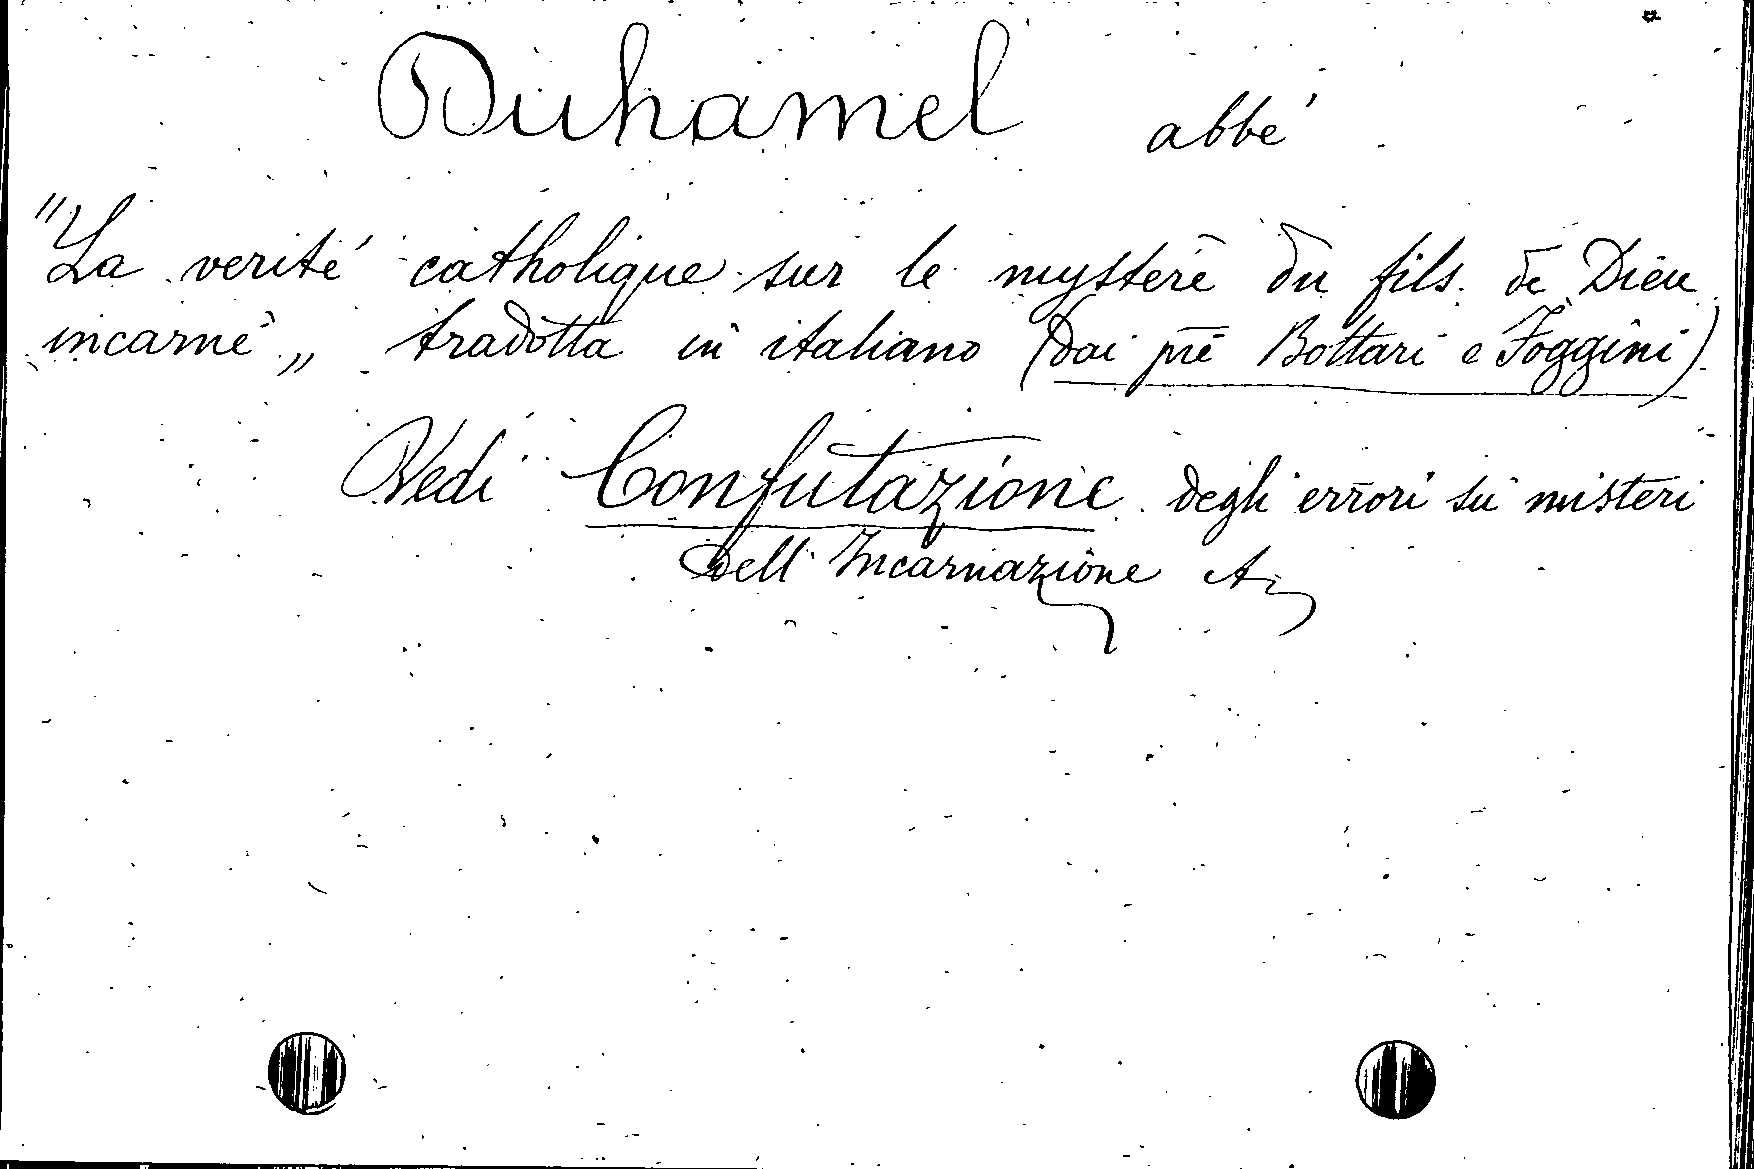 Duhamel abbé
"La verité catholique sur le mystère du fils de Dieu
incarné„ tradotta in italiano (dai pñi Bottari e Foggini)
Vedi Confutazione degli errori su' misteri
dell'Incarnazione